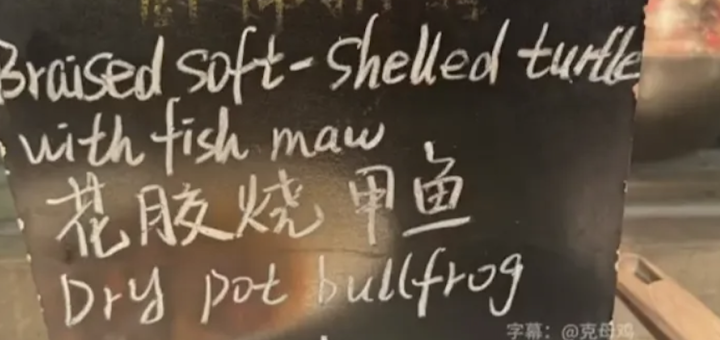 Braised soft-shelled turtle
with fish maw
花胶烧甲鱼
Dry pot bullfrog
字幕：@克母鸡